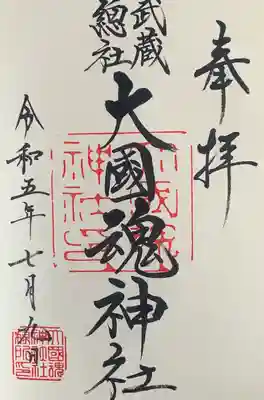 奉拝
武蔵
總社
大國魂神社
令和五年七月九日